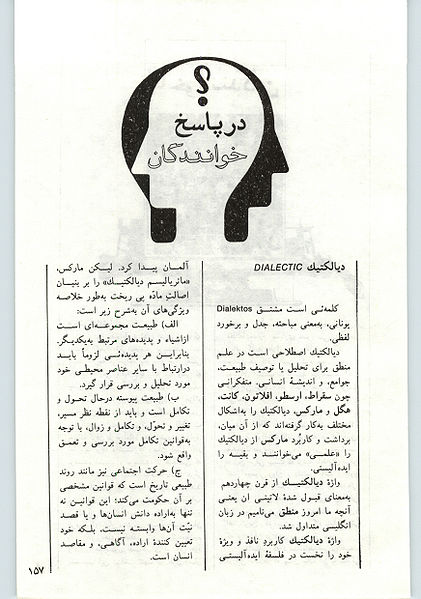 ؟
در پاسخ
خوانندگان
دیالکتیك DIALECTIC
کلمه‌ئی است مشتق Dialektos
یونانی، به‌معنی مباحثه، جدل و برخورد
لفظی.
دیالکتیك اصطلاحی است در علم
منطق برای تحلیل یا توصیف طبیعت،
جوامع، و اندیشهٔ انسانی. متفکرانی
چون سقراط، ارسطو، افلاتون، کانت،
هگل و مارکس، دیالکتیك را به‌اشکال
مختلف به‌کار گرفته‌اند که از آن میان،
برداشت و کاربُرد مارکس از دیالکتیك
را «علمی» می‌خوانند و بقیه را
ایده‌آلیستی.
واژهٔ دیالکتیك از قرن چهاردهم
به‌معنای قبول شدهٔ لاتینی آن یعنی
آنچه ما امروز منطق می‌نامیم در زبان
انگلیسی متداول شد.
واژهٔ دیالکتیك کاربردِ نافذ و ویژهٔ
خود را نخست در فلسفهٔ ایده‌آلیستی
آلمان پیدا کرد. لیکن مارکس،
«ماتریالیسم دیالکتیك» را بر بنیان
اصالتِ مادّه پی ریخت به‌طور خلاصه
ویژگی‌های آن به‌شرح زیر است:
الف) طبیعت مجموعه‌ای است
ازاشیاء و پدیده‌های مرتبط به‌یکدیگر.
بنابراین هر پدیده‌ئی لزوماً باید
درارتباط با سایر عناصر محیطی خود
مورد تحلیل و بررسی قرار گیرد.
ب) طبیعت پیوسته درحال تحول و
تکامل است و باید از نقطه نظر مسیر،
تغییر و تحوّل، و تکامل و زوال، با توجه
به‌قوانین تکامل مورد بررسی و تعمق
واقع شود.
ج) حرکت اجتماعی نیز مانند روند
طبیعی تاریخ است که قوانین مشخصی
بر آن حکومت می‌کند؛ این قوانین نه
تنها به‌اراده دانش انسان‌ها و یا قصد
نیّت آن‌ها وابسته نیست، بلکه خود
تعیین کنندهٔ اراده، آگاهی، و مقاصد
انسان است.
۱۵۷